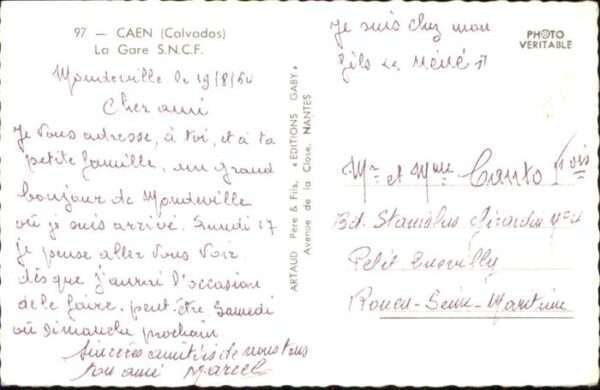 97 — CAEN (Calvados)
La Gare S.N.C.F.
Mondeville le 19/8/60
Cher ami
Je vous adresse, à toi, et à ta
petite famille, un grand
bonjour de Mondeville
où je suis arrivé. Lundi 17
je pense aller vous voir
dès que j'aurai l'occasion
de le faire. peut-être Samedi
ou Dimanche prochain
Sincères amitiés de nous tous
ton ami Marcel
ARTAUD Père & Fils, « EDITIONS GABY »
Avenue de la Close, NANTES
Je suis chez mon
fils
PHOTO
VERITABLE
Mr et Mme Canto
Bd. Stanislas Girardin
Petit Quevilly
Rouen-Seine-Maritime